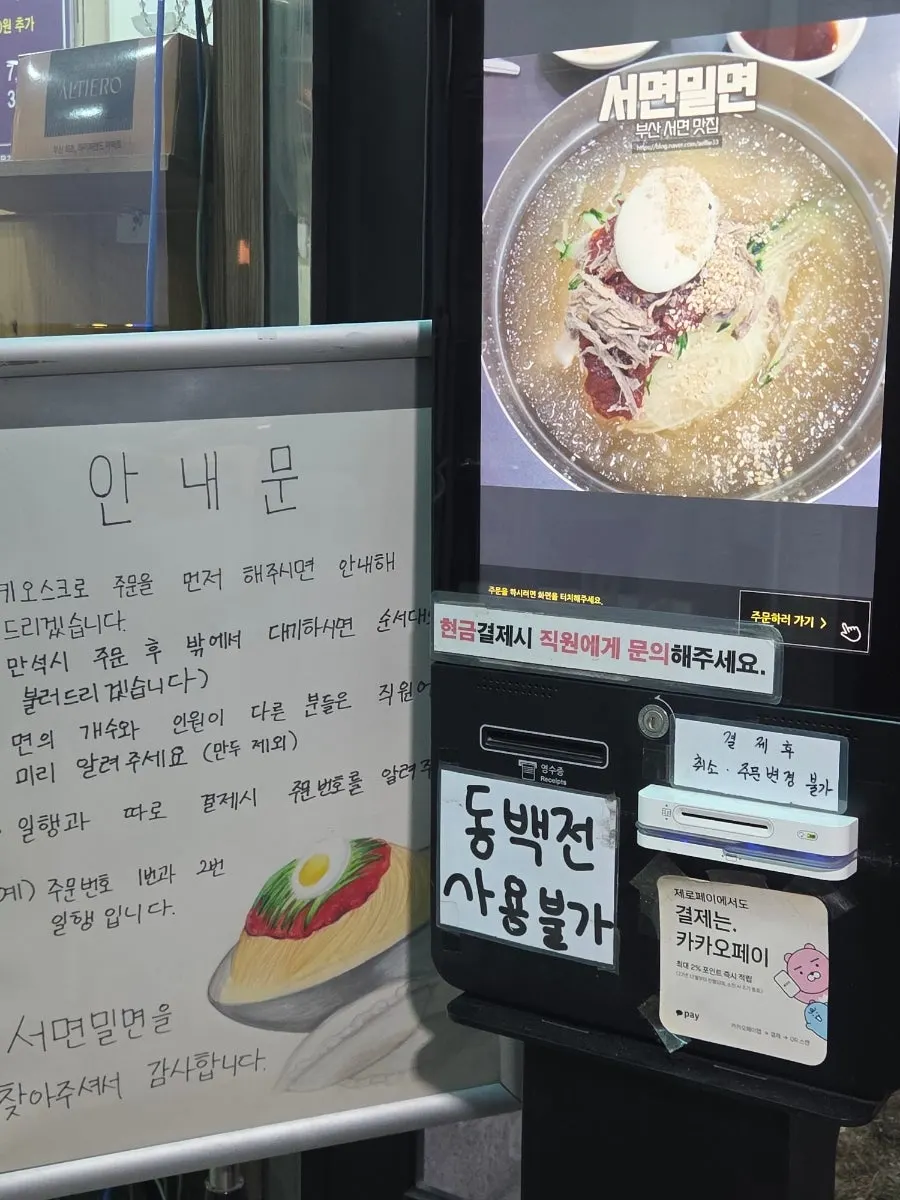 0원 추가
ALTIERO
안내문
키오스크로 주문을 먼저 해주시면 안내해
드리겠습니다.
만석시 주문 후 밖에서 대기하시면 순서대
불러드리겠습니다)
면의 개수와 인원이 다른 분들은 직원
미리 알려주세요 (만두 제외)
일행과 따로 결제시 주문번호를 알려주
예) 주문번호 1번과 2번
일행입니다.
서면밀면을
찾아주셔서 감사합니다.
서면밀면
부산 서면 맛집
주문을 하시려면 화면을 터치해주세요.
주문하러 가기 >
현금결제시 직원에게 문의해주세요.
영수증
Receipts
결제 후
취소 · 주문변경 불가
동백전
사용불가
제로페이에서도
결제는,
카카오페이
최대 2% 포인트 즉시 적립
pay
카카오페이앱 → 결제 → QR스캔